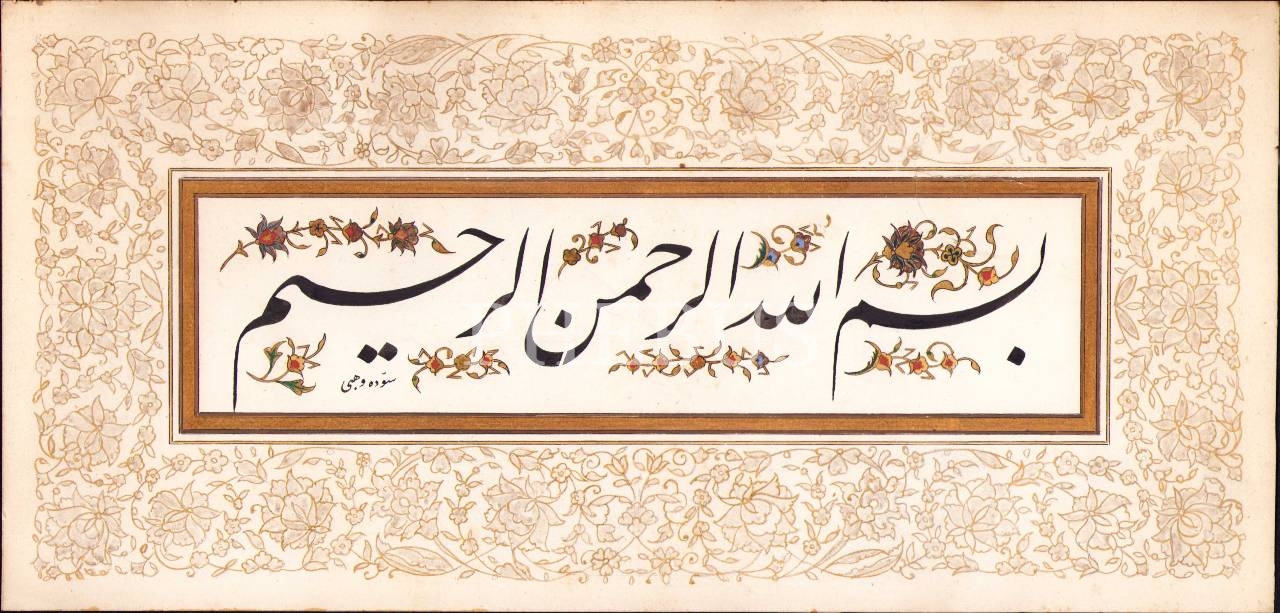 بسم الله الرحمن الرحيم
سوّده وهبی